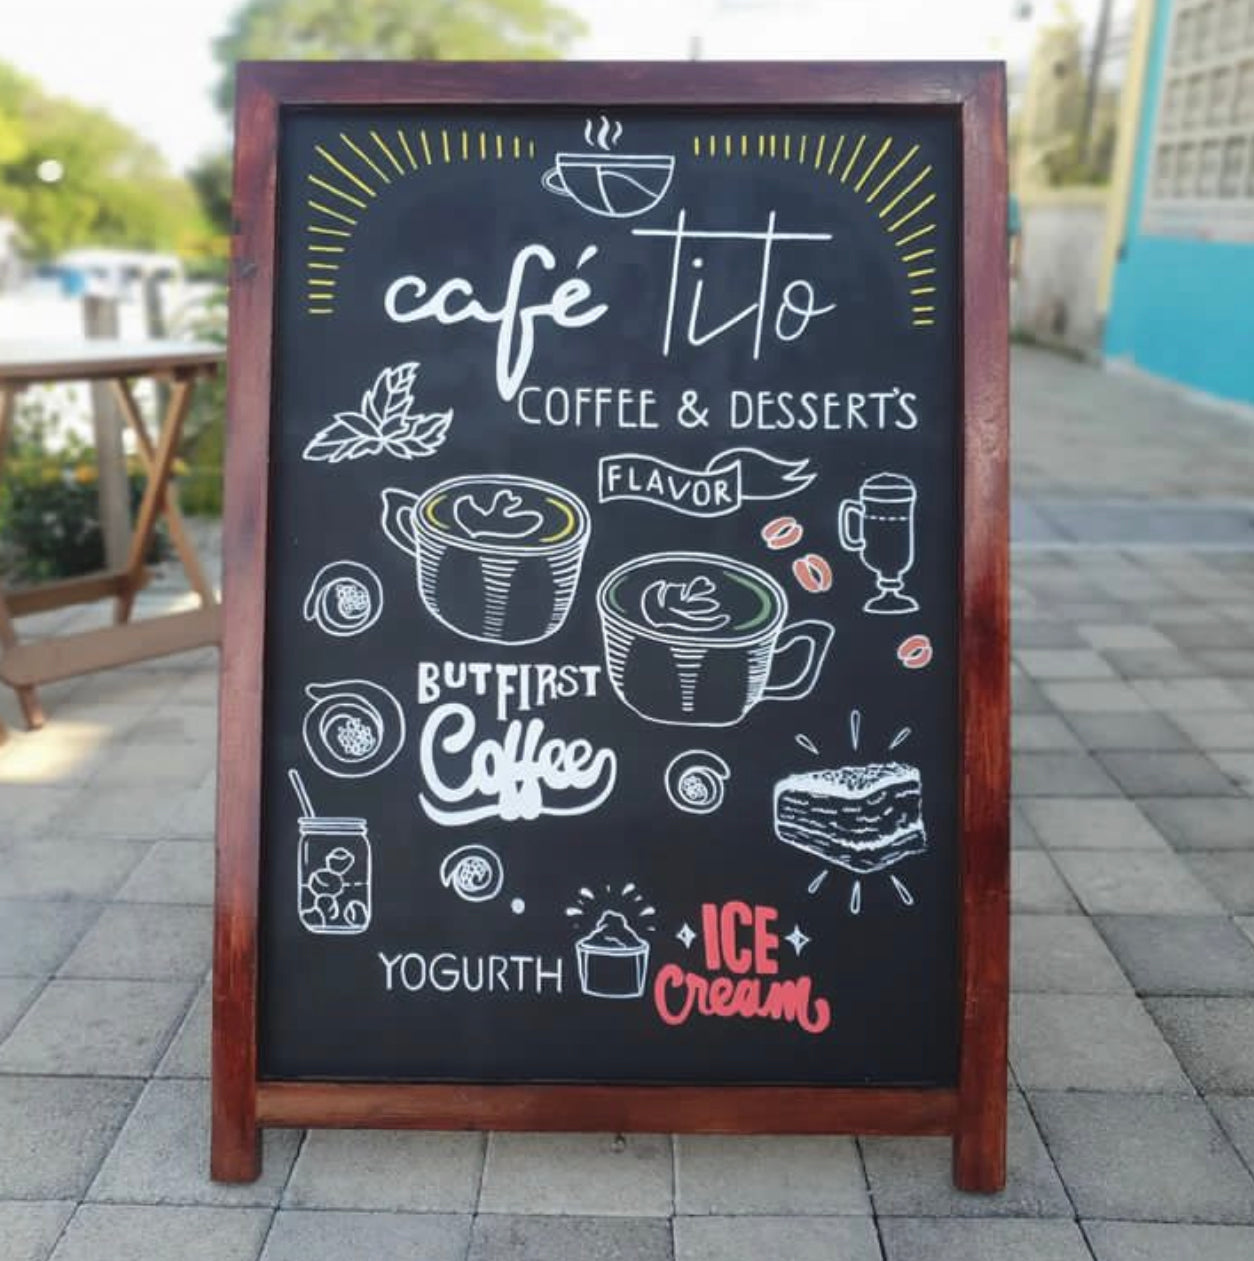 café Tito
COFFEE & DESSERT'S
FLAVOR
BUT FIRST
Coffee
YOGURTH
ICE
Cream